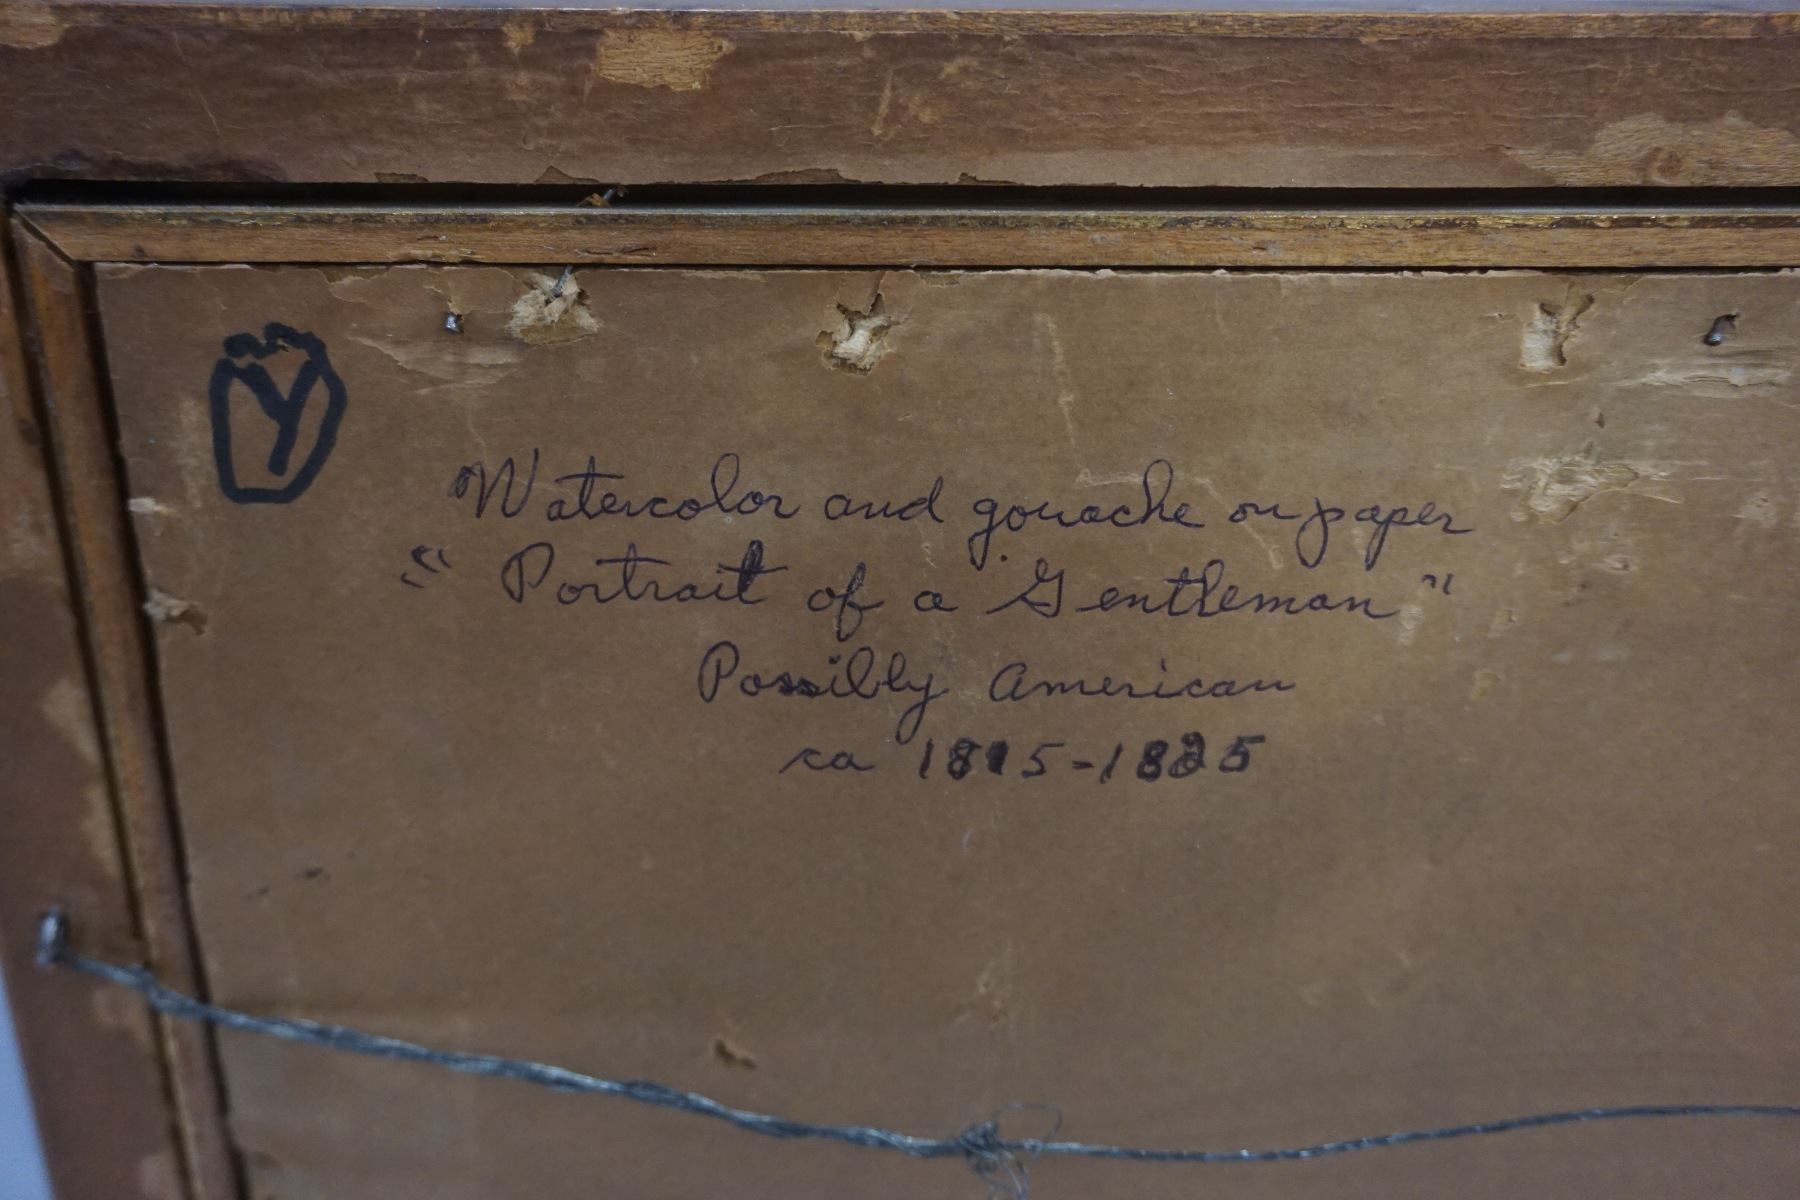 Y
Watercolor and gouache on paper
"Portrait of a Gentleman"
Possibly American
ca 1815-1825